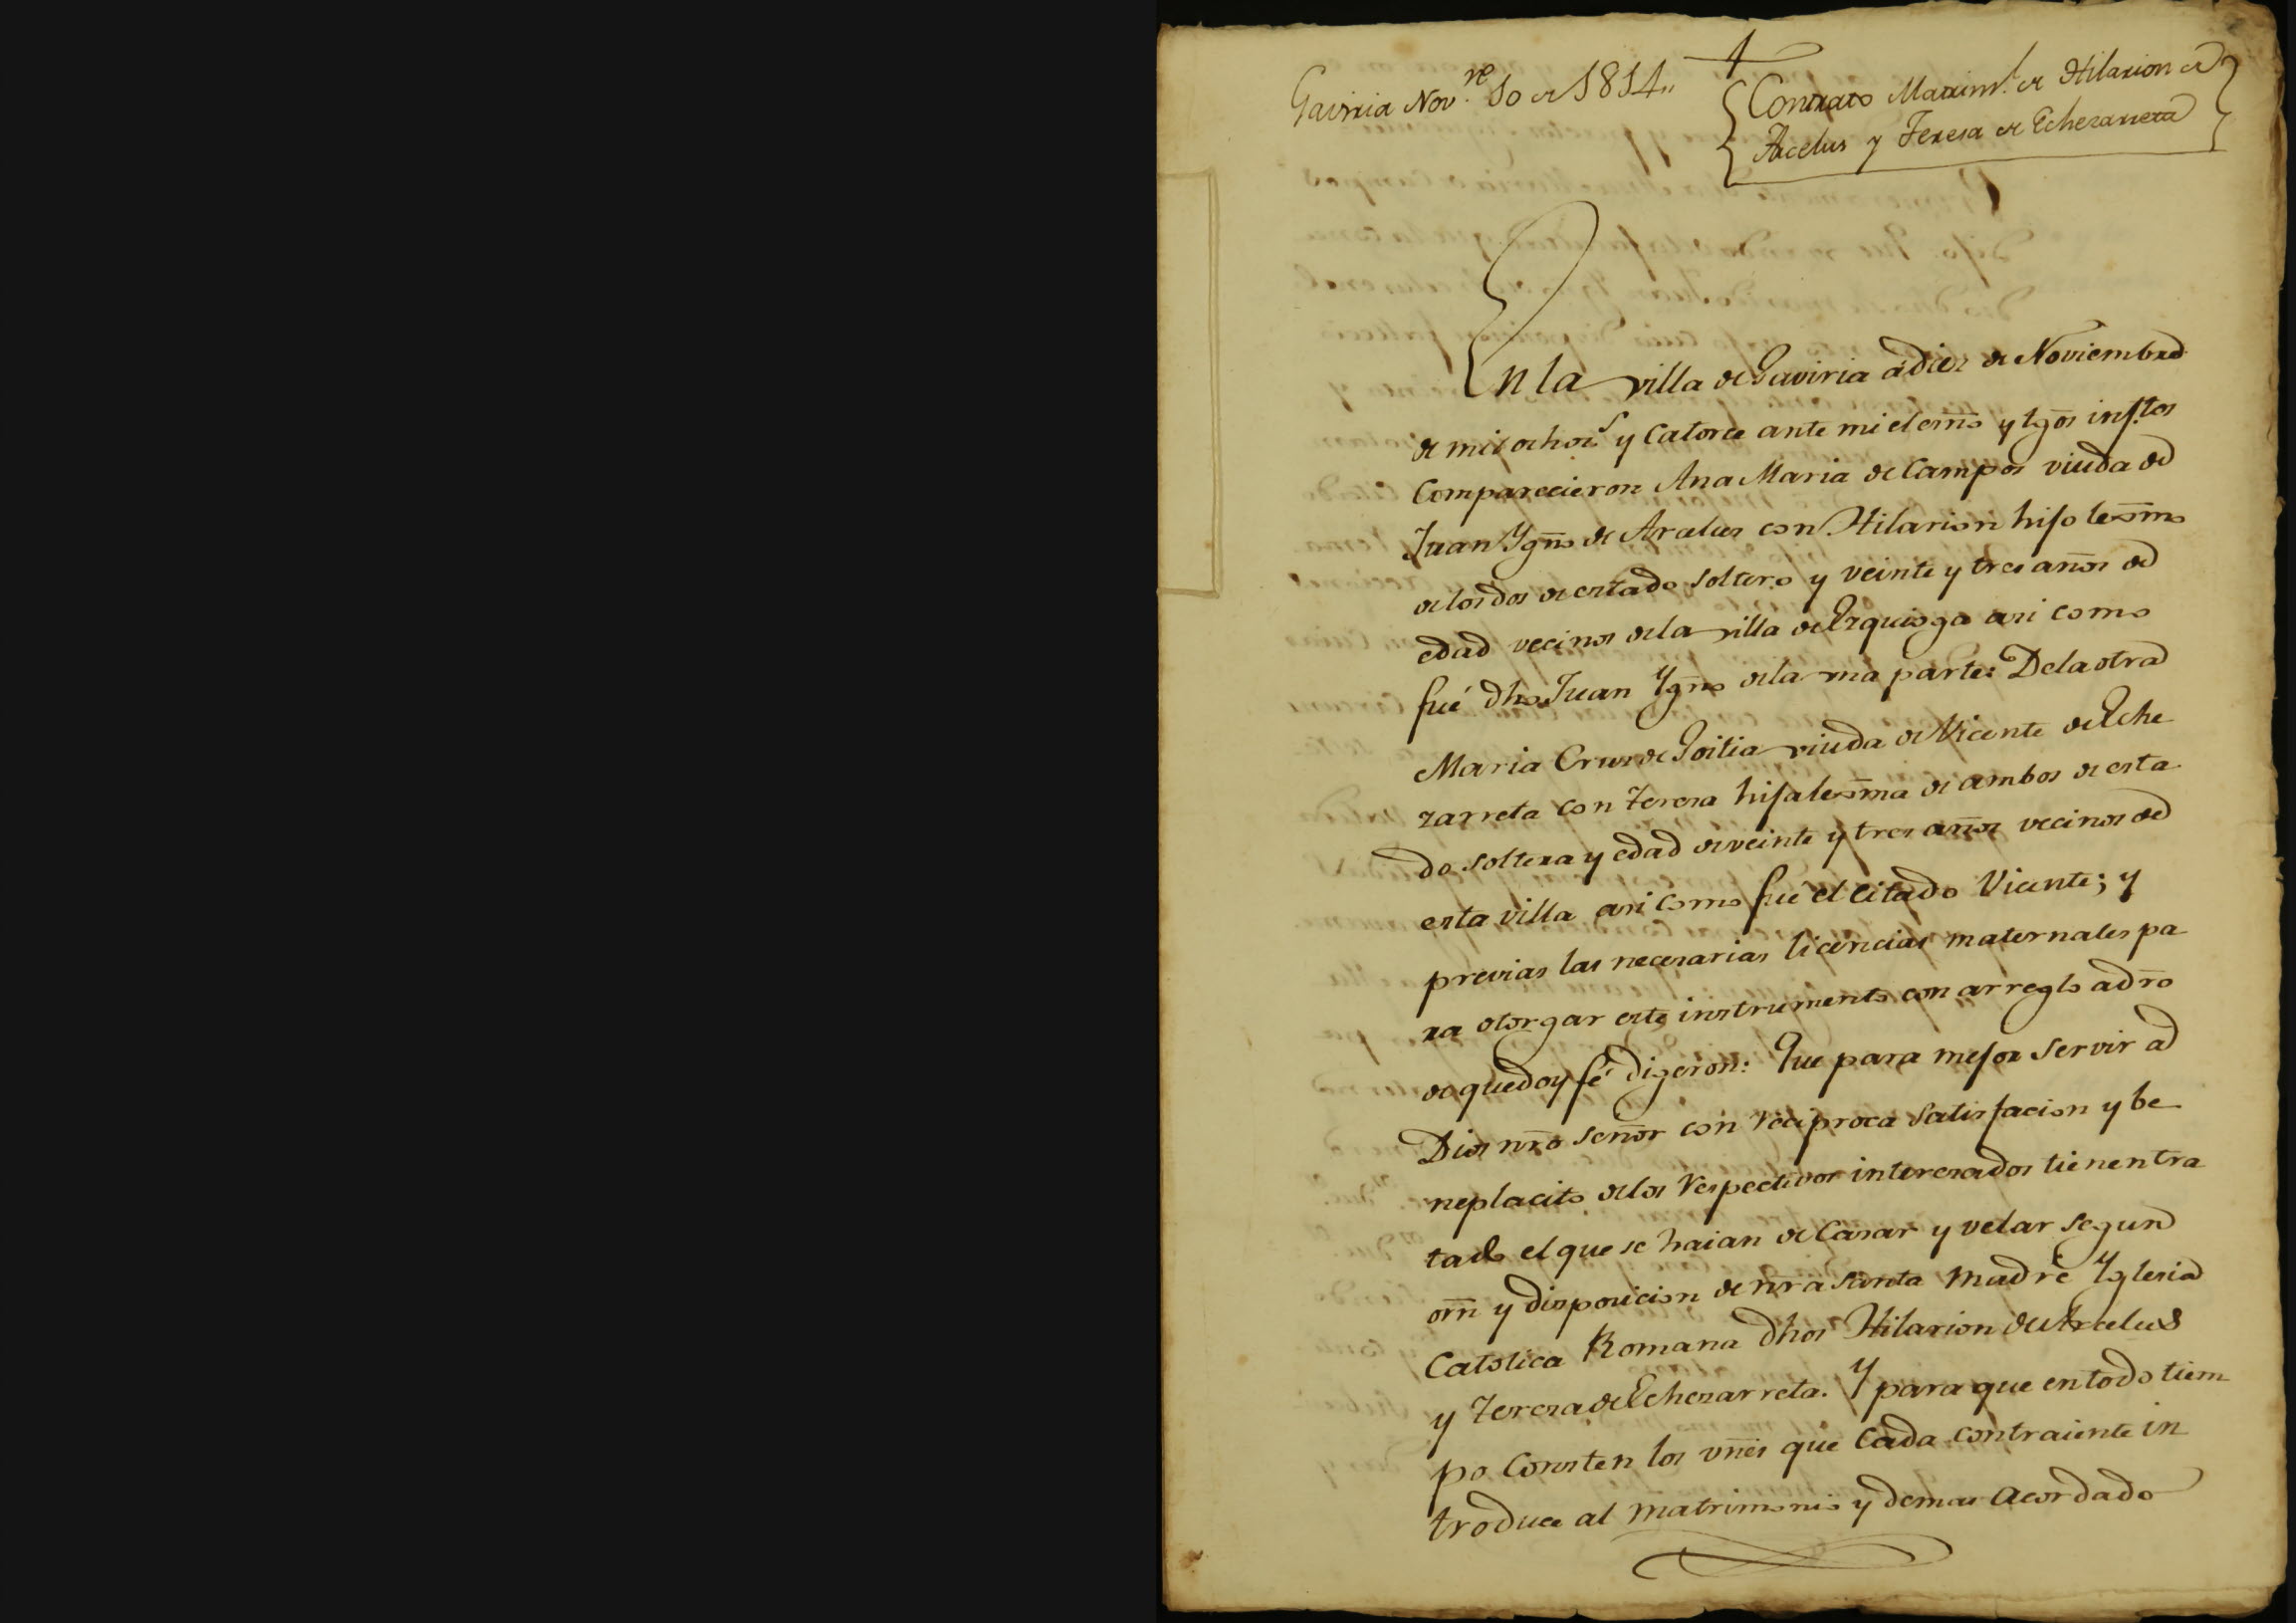 Gaviria Nov.re 10 de 1814.,
Contrato Matrim.l de Hilarion de
Arcelus y Teresa de Echezarreta
En la villa de Gaviria á diez de Noviembre
de mil ochoc.s y Catorce ante mi el esñno y tg̃os insf.tos
Comparecieron Ana Maria de Campos viuda de
Juan Ygñ.o de Arcelus con Hilarion hijo lexm̃o
de los dos de estado soltero y veinte y tres años de
edad vecinos de la villa de Ezquioga asi como
fué dho Juan Ygño de la una parte: De la otra
Maria Cruz de Goitia viuda de Vicente de Eche
zarreta con Teresa hija lexm̃a de ambos de esta
do soltera y edad de veinte y tres años vecinos de
esta villa asi como fué el citado Vicente; y
previas las necesarias licencias maternales pa
ra otorgar este instrumento con arreglo a dr̃o
de que doy fé digeron: Que para mejor servir a
Dios nr̃o señor con reciproca satisfacion y be
neplacito de los respectivos interesados tienen tra
tado el que se haian de Casar y velar segun
orñ y disposicion de nr̃a santa Madre Yglesia
Catolica Romana dhos Hilarion de Arcelus
y Teresa de Echezarreta. Y para que en todo tiem
po Consten los vñes que cada contraiente in
troduce al matrimonio y demas acordado